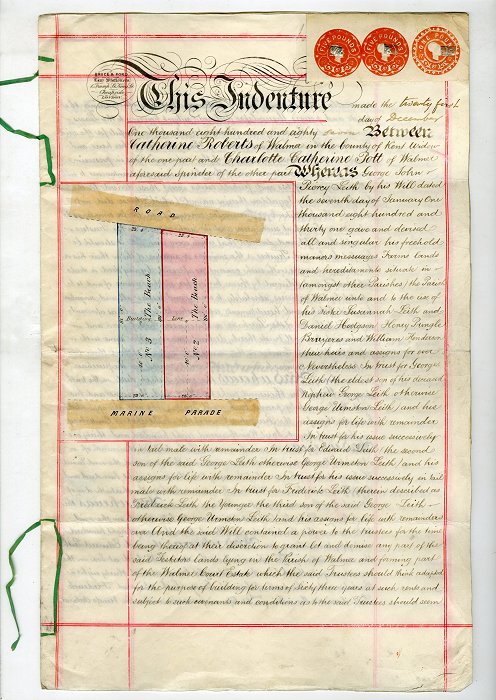 FIVE POUNDS
FIVE POUNDS
This Indenture
made the twenty first
day of December
One thousand eight hundred and eighty seven Between
Catherine Roberts of Walmer in the County of Kent Widow
of the one part and Charlotte Catherine Pott of Walmer
aforesaid Spinster of the other part Whereas George John
Leith by his Will dated
the seventh day of January One
thousand eight hundred and
thirty one gave and devised
all and singular his freehold
manors messuages Farms lands
and hereditaments situate in
(amongst other Parishes) the Parish
of Walmer unto and to the use of
his Sister Susannah Leith and
Daniel Hodgson Henry Pringle
Bruyeres and William Henderson
their heirs and assigns for ever
Nevertheless In trust for George
Leith (the eldest son of his deceased
Nephew George Leith otherwise
George Urmston Leith) and his
assigns for life with remainder
In trust for his issue successively
in tail male with remainder In trust for Edward Leith (the second
son of the said George Leith otherwise George Urmston Leith) and his
assigns for life with remainder In trust for his issue successively in tail
male with remainder In trust for Frederick Leith (therein described as
Frederick Leith the Younger the third son of the said George Leith
otherwise George Urmston Leith) and his assigns for life with remainders
over And the said Will contained a power to the trustees for the time
being thereof at their discretion to grant let and demise any part of the
said Testators lands lying in the Parish of Walmer and forming part
of the Walmer Court Estate which the said Trustees should think adapted
for the purpose of building for terms of sixty three years at such rents and
subject to such covenants and conditions as to the said Trustees should seem
ROAD
No 3 The Beach
Building
Line
No 2 The Beach
MARINE PARADE